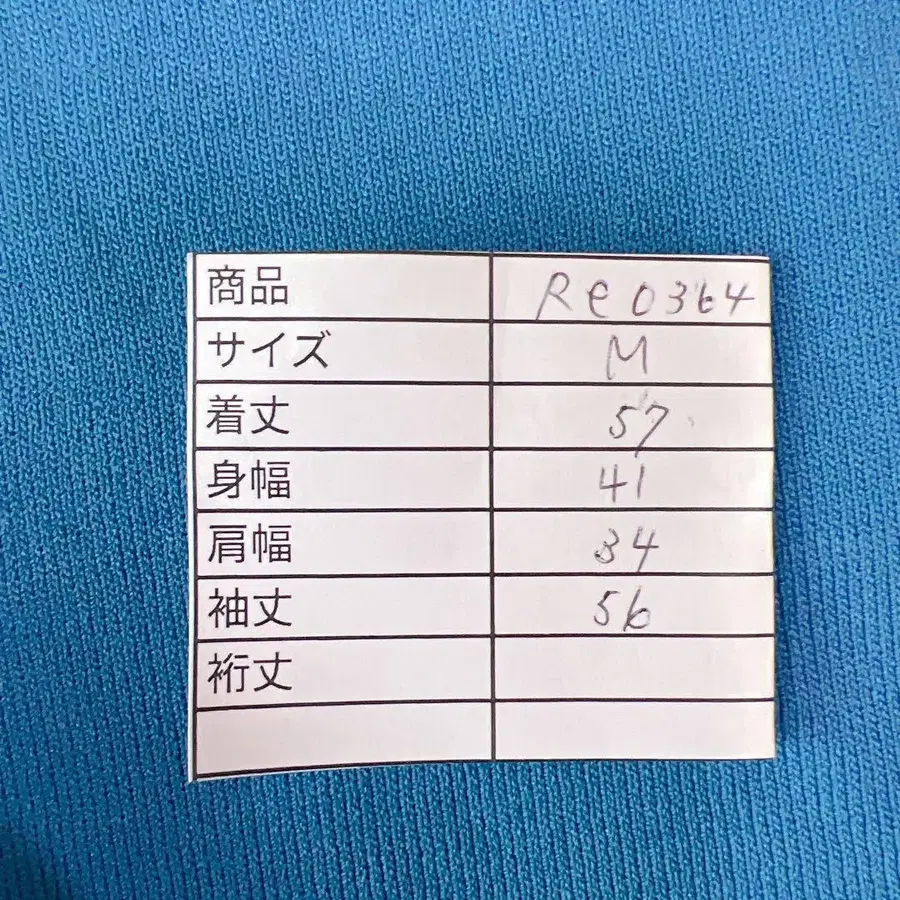 商品 Re0364
サイズ M
着丈 57
身幅 41
肩幅 34
袖丈 56
裄丈